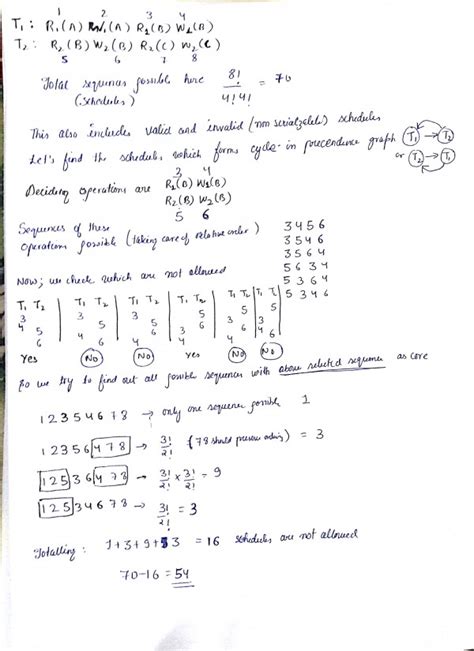 1 2 3 4
T1 : R1(A) W1(A) R1(B) W1(B)
T2 : R2(B) W2(B) R2(C) W2(C)
5 6 7 8
Total sequences possible here 8!/4!4! = 70
(schedules)
This also includes valid and invalid (non serializable) schedules
Let's find the schedules which forms cycle in precendence graph T1 → T2
or T2 → T1
3 4
Deciding operations are R1(B) W1(B)
R2(B) W2(B)
5 6
Sequences of these
operations possible (taking care of relative order)
3 4 5 6
3 5 4 6
3 5 6 4
5 6 3 4
5 3 6 4
5 3 4 6
Now, we check which are not allowed
T1 T2 | T1 T2 | T1 T2 | T1 T2 | T1 T2 | T1 T2
3 | 3 | 3 | 5 | 5 | 5
4 | 5 | 5 | 6 | 3 | 3
5 | 4 | 6 | 3 | 6 | 4
6 | 6 | 4 | 4 | 4 | 6
Yes No No Yes No No
So we try to find out all possible sequences with above selected sequence as core
1 2 3 5 4 6 7 8 → only one sequence possible 1
1 2 3 5 6 4 7 8 → 3!/2! (78 should preserve ) = 3
1 2 5 3 6 4 7 8 → 3!/2! × 3!/2! = 9
1 2 5 3 4 6 7 8 → 3!/2! = 3
Totalling : 1+3+9+3 = 16 schedules are not allowed
70-16 = 54